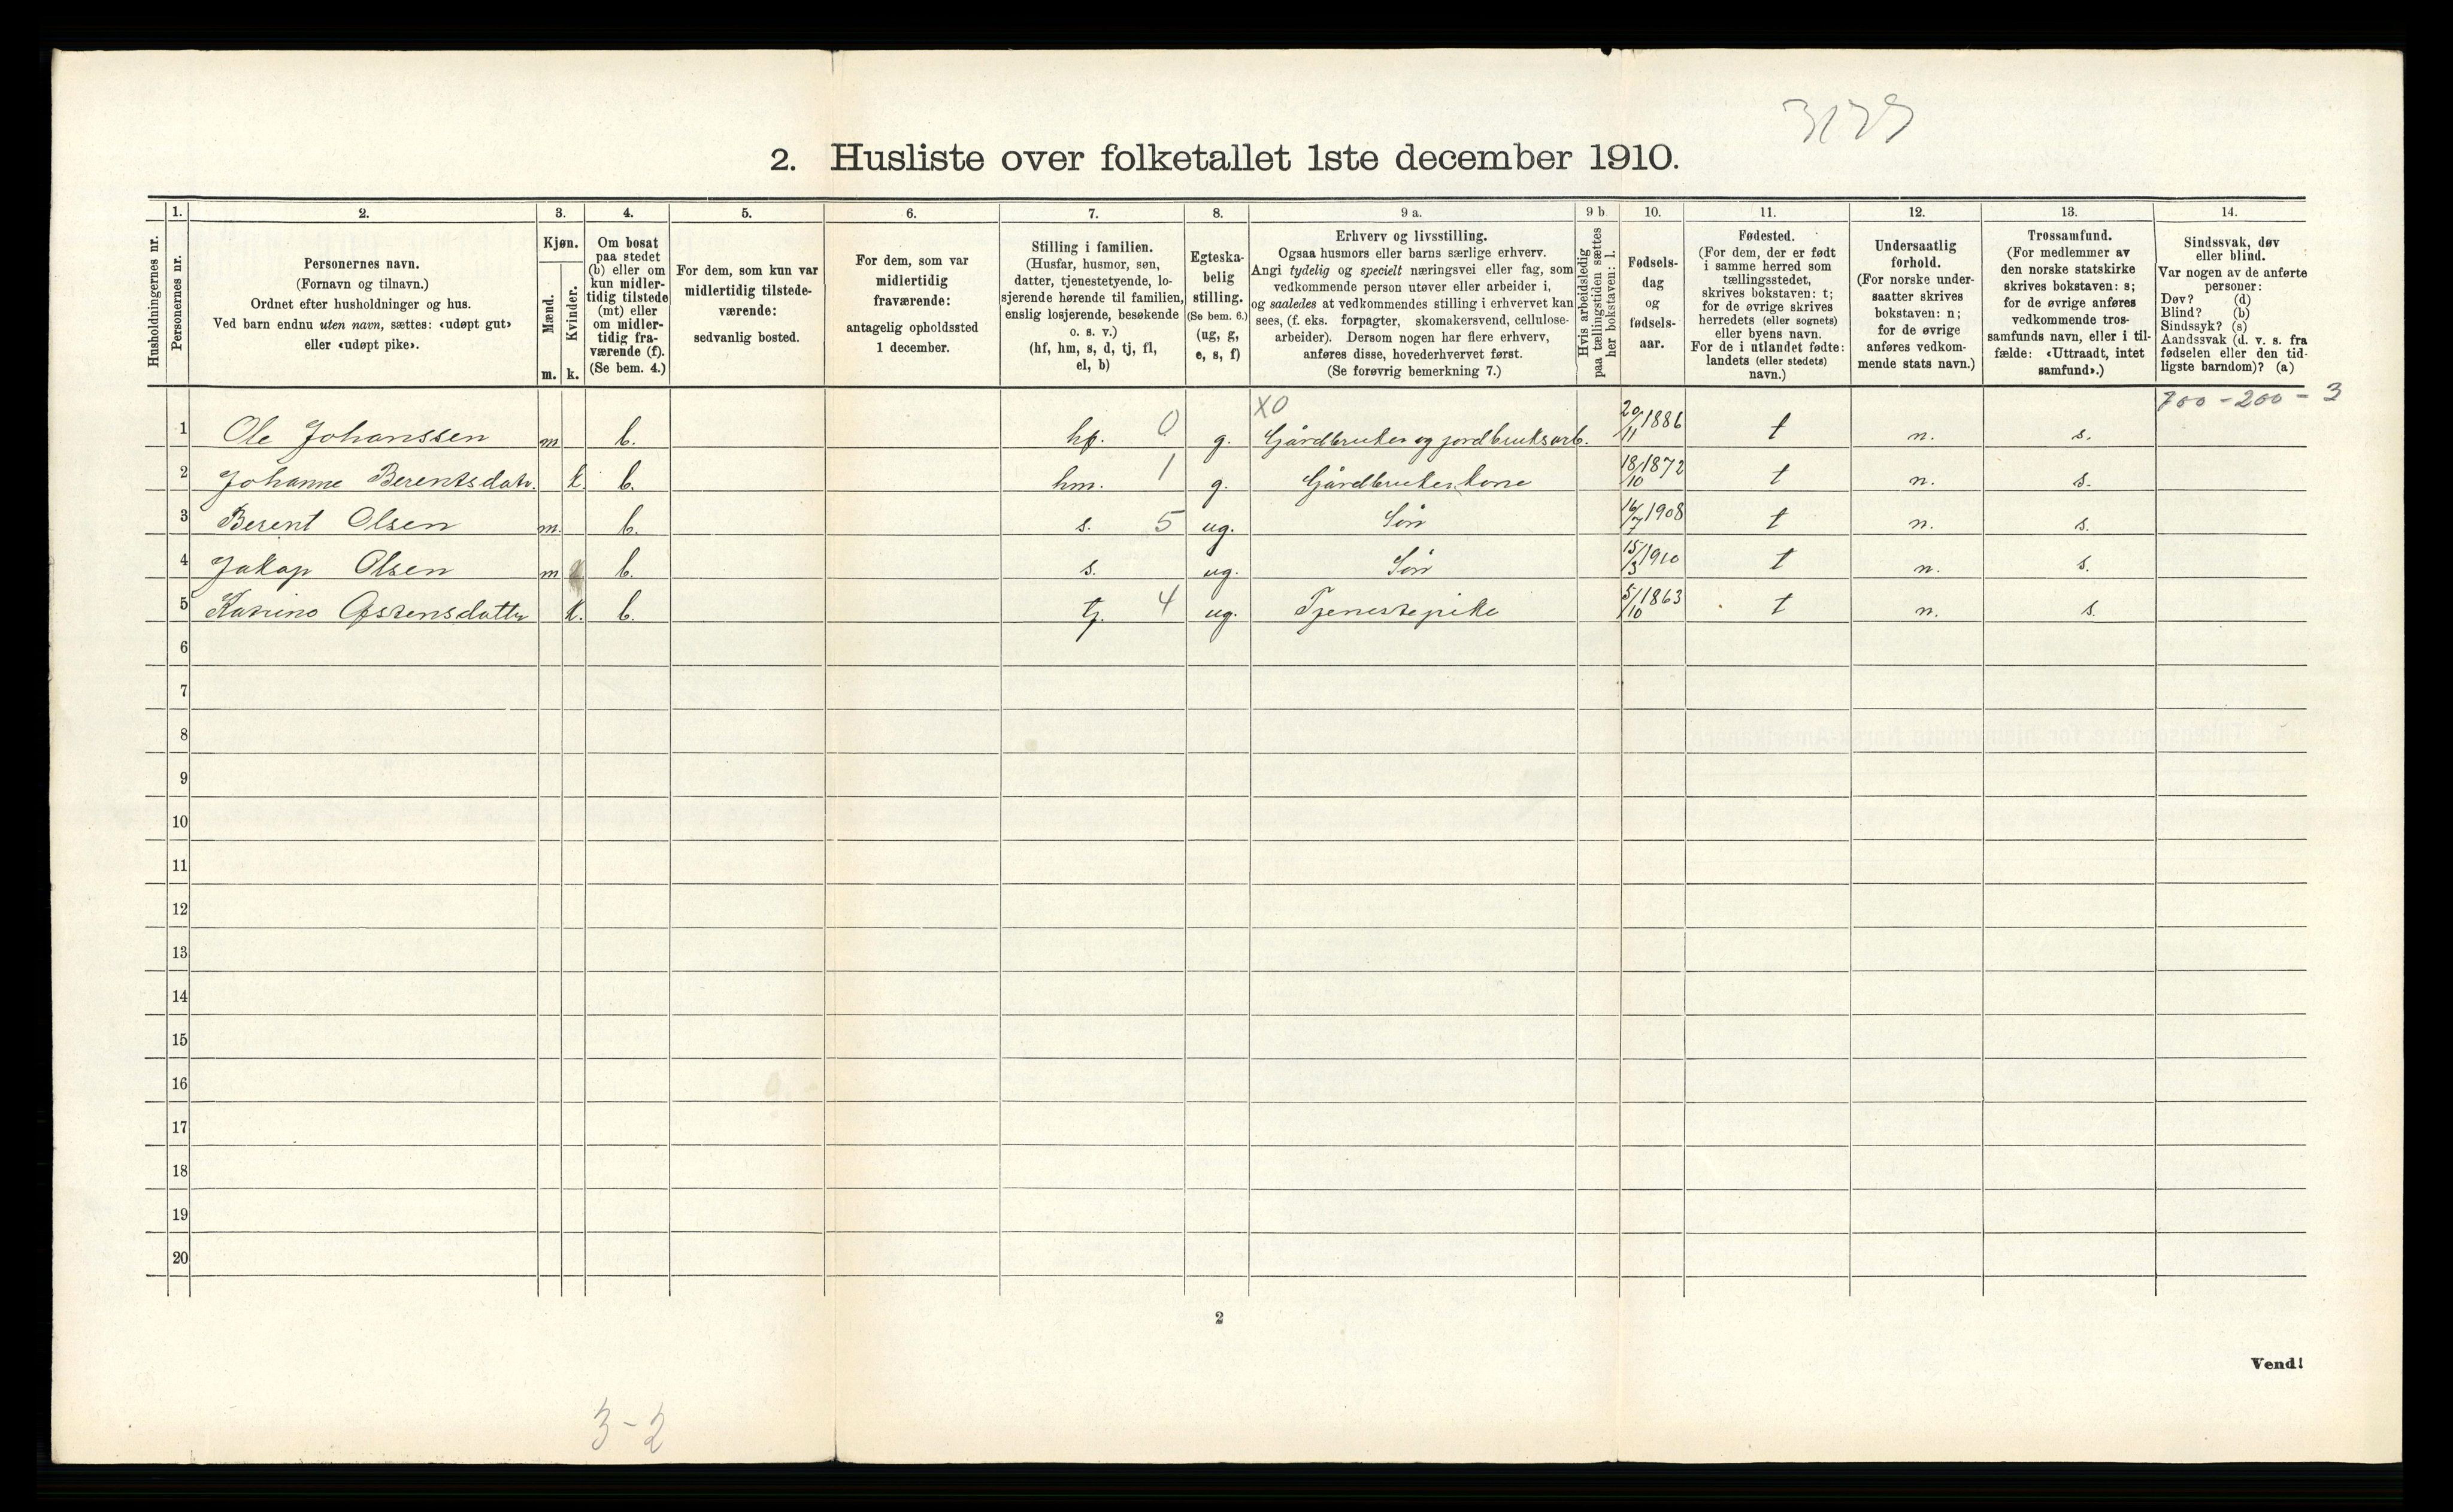 3179
2. Husliste over folketallet 1ste december 1910.
Husholdningernes nr.
1.
Personernes nr.
2.
Personernes navn.
(Fornavn og tilnavn.)
Ordnet efter husholdninger og hus.
Ved barn endnu uten navn, sættes: «udøpt gut»
eller «udøpt pike».
3.
Kjøn.
Mænd.
Kvinder.
m. k.
4.
Om bosat
paa stedet
(b) eller om
kun midler-
tidig tilstede
(mt) eller
om midler-
tidig fra-
værende (f).
(Se bem. 4.)
5.
For dem, som kun var
midlertidig tilstede-
værende:
sedvanlig bosted.
6.
For dem, som var
midlertidig
fraværende:
antagelig opholdssted
1 december.
7.
Stilling i familien.
(Husfar, husmor, søn,
datter, tjenestetyende, lo-
sjerende hørende til familien,
enslig losjerende, besøkende
o. s. v.)
(hf, hm, s, d, tj, fl,
el, b)
8.
Egteska-
belig
stilling.
(Se bem. 6.)
(ug, g,
e, s, f)
9 a.
Erhverv og livsstilling.
Ogsaa husmors eller barns særlige erhverv.
Angi tydelig og specielt næringsvei eller fag, som
vedkommende person utøver eller arbeider i,
og saaledes at vedkommendes stilling i erhvervet kan
sees, (f. eks. forpagter, skomakersvend, cellulose-
arbeider). Dersom nogen har flere erhverv,
anføres disse, hovederhvervet først.
(Se forøvrig bemerkning 7.)
9 b.
Hvis arbeidsledig
paa tællingstiden sættes
her bokstaven: l.
10.
Fødsels-
dag
og
fødsels-
aar.
11.
Fødested.
(For dem, der er født
i samme herred som
tællingsstedet,
skrives bokstaven: t;
for de øvrige skrives
herredets (eller sognets)
eller byens navn.
For de i utlandet fødte:
landets (eller stedets)
navn.)
12.
Undersaatlig
forhold.
(For norske under-
saatter skrives
bokstaven: n;
for de øvrige
anføres vedkom-
mende stats navn.)
13.
Trossamfund.
(For medlemmer av
den norske statskirke
skrives bokstaven: s;
for de øvrige anføres
vedkommende tros-
samfunds navn, eller i til-
fælde: «Uttraadt, intet
samfund».)
14.
Sindssvak, døv
eller blind.
Var nogen av de anførte
personer:
Døv? (d)
Blind? (b)
Sindssyk? (s)
Aandssvak (d. v. s. fra
fødselen eller den tid-
ligste barndom)? (a)
700 - 200 - 3
X0
1 Ole Johanssen m b. hf. 0 g. Gårdbruker og jordbruksarb. 20/11 1886 t n. s.
2 Johanne Berentsdatr. k. b. hm. 1 g. Gårdbrukerkone 18/10 1872 t n. s.
3 Berent Olsen m. b. s. 5 ug. Søn 16/7 1908 t n. s.
4 Jakop Olsen m b. s. ug. Søn 15/3 1910 t n. s.
5 Karino Östensdatter k. b. tj. 4 ug. Tjenestepike 5/10 1863 t n. s.
6
7
8
9
10
11
12
13
14
15
16
17
18
19
20
2
Vend!
3-2